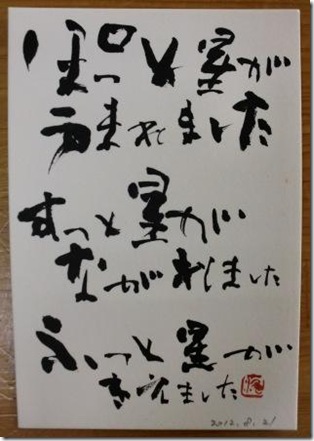 ぽっと星が
うまれました
すっと星が
ながれました
ふっと星が
きえました
2012.8.21